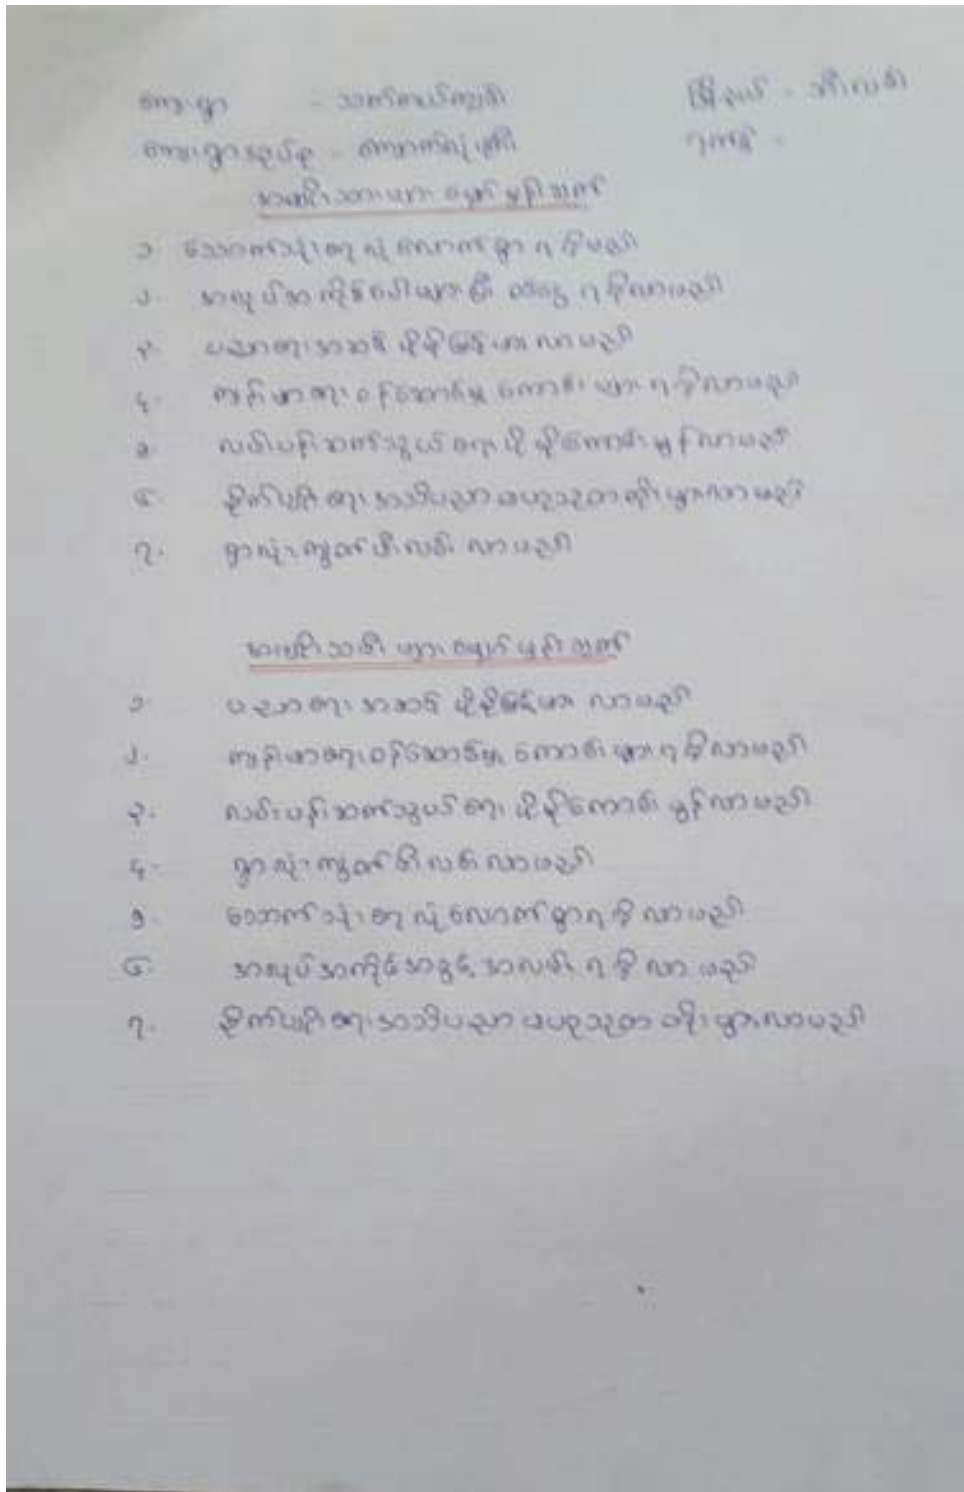 ကျေးရွာ - သက်ကယ်ကျင်း မြို့နယ် - ဘီးလင်း
ကျေးရွာအုပ်စု - ကျောက်လုံးကြီး ရက်စွဲ -
အမျိုးသားများ မျှော်မှန်းချက်
၁ သောက်သုံးရေ လုံလောက်စွာ ရရှိမည်
၂. အလုပ်အကိုင်ပေါများပြီး ဝင်ငွေ ရရှိလာမည်
၃. ပညာရေးအဆင့် ပိုမိုမြင့်မားလာမည်
၄. ကျန်းမာရေး ဝန်ဆောင်မှု ကောင်းများ ရရှိလာမည်
၅. လမ်းပန်းဆက်သွယ်ရေး ပိုမိုကောင်းမွန်လာမည်
၆ စိုက်ပျိုးရေး အသိပညာ ဗဟုသုတတိုးပွားလာမည်
၇. ရွာလုံးကျွတ်မီးလင်းလာမည်
အမျိုးသမီးများ မျှော်မှန်းချက်
၁ ပညာရေး အဆင့် ပိုမိုမြင့်မား လာမည်
၂. ကျန်းမာရေးဝန်ဆောင်မှု ကောင်းများရရှိလာမည်
၃. လမ်းပန်းဆက်သွယ်ရေး ပိုမိုကောင်းမွန်လာမည်
၄. ရွာလုံးကျွတ်မီးလင်းလာမည်
၅. သောက်သုံးရေ လုံလောက်စွာရရှိလာမည်
၆. အလုပ်အကိုင်အခွင့်အလမ်း ရရှိလာမည်
၇. စိုက်ပျိုးရေးအသိပညာ ဗဟုသုတ တိုးပွားလာမည်